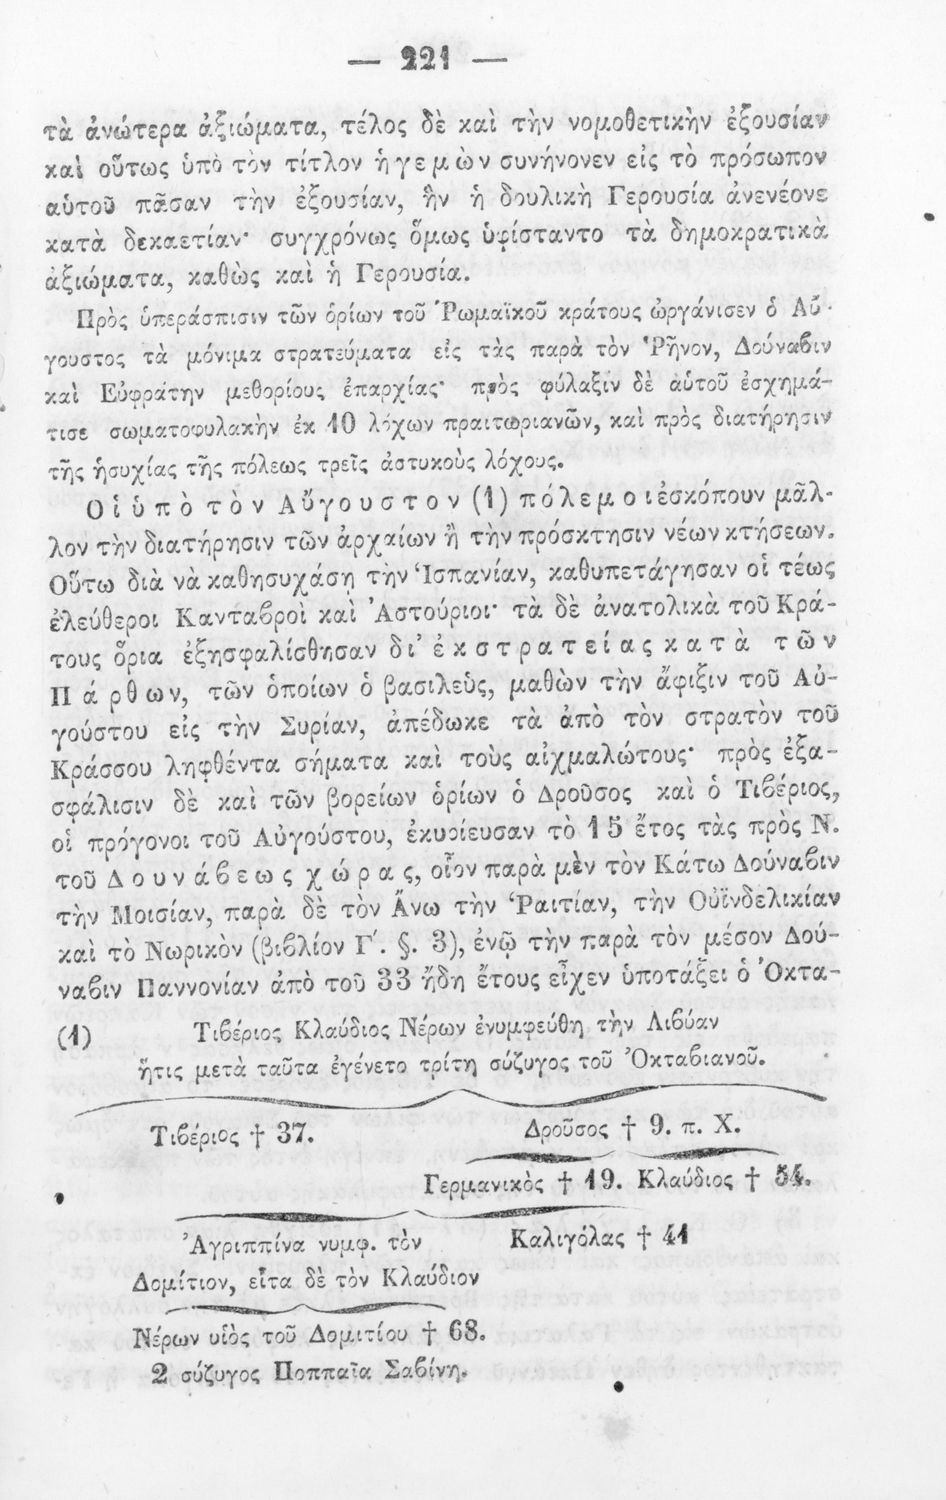 — 221 —
τὰ ἀνώτερα ἀξιώματα, τέλος δὲ καὶ τὴν νομοθετικὴν ἐξουσίαν
καὶ οὕτως ὑπὸ τὸν τίτλον ἡγεμὼν συνήνονεν εἰς τὸ πρόσωπον
αὑτοῦ πᾶσαν τὴν ἐξουσίαν, ἣν ἡ δουλικὴ Γερουσία ἀνενέονε
κατὰ δεκαετίαν· συγχρόνως ὅμως ὑφίσταντο τὰ δημοκρατικὰ
ἀξιώματα, καθὼς καὶ ἡ Γερουσία.
Πρὸς ὑπεράσπισιν τῶν ὁρίων τοῦ Ῥωμαϊκοῦ κράτους ὠργάνισεν ὁ Αὔ-
γουστος τὰ μόνιμα στρατεύματα εἰς τὰς παρὰ τὸν Ῥῆνον, Δούναβιν
καὶ Εὐφράτην μεθορίους ἐπαρχίας· πρὸς φύλαξιν δὲ αὑτοῦ ἐσχημά-
τισε σωματοφυλακὴν ἐκ 10 λόχων πραιτωριανῶν, καὶ πρὸς διατήρησιν
τῆς ἡσυχίας τῆς πόλεως τρεῖς ἀστυκοὺς λόχους.
Οἱ ὑπὸ τὸν Αὔγουστον (1) πόλεμοι ἐσκόπουν μᾶλ-
λον τὴν διατήρησιν τῶν ἀρχαίων ἢ τὴν πρόσκτησιν νέων κτήσεων.
Οὕτω διὰ νὰ καθησυχάσῃ τὴν Ἱσπανίαν, καθυπετάγησαν οἱ τέως
ἐλεύθεροι Κανταβροὶ καὶ Ἀστούριοι· τὰ δὲ ἀνατολικὰ τοῦ Κρά-
τους ὅρια ἐξησφαλίσθησαν δι' ἐκστρατείας κατὰ τῶν
Πάρθων, τῶν ὁποίων ὁ βασιλεὺς, μαθὼν τὴν ἄφιξιν τοῦ Αὐ-
γούστου εἰς τὴν Συρίαν, ἀπέδωκε τὰ ἀπὸ τὸν στρατὸν τοῦ
Κράσσου ληφθέντα σήματα καὶ τοὺς αἰχμαλώτους· πρὸς ἐξα-
σφάλισιν δὲ καὶ τῶν βορείων ὁρίων ὁ Δροῦσος καὶ ὁ Τιβέριος,
οἱ πρόγονοι τοῦ Αὐγούστου, ἐκυρίευσαν τὸ 15 ἔτος τὰς πρὸς Ν.
τοῦ Δουνάβεως χώρας, οἷον παρὰ μὲν τὸν Κάτω Δούναβιν
τὴν Μοισίαν, παρὰ δὲ τὸν Ἄνω τὴν Ῥαιτίαν, τὴν Οὐϊνδελικίαν
καὶ τὸ Νωρικὸν (βιβλίον Γ΄. §. 3), ἐνῷ τὴν παρὰ τὸν μέσον Δού-
ναβιν Παννονίαν ἀπὸ τοῦ 33 ἤδη ἔτους εἶχεν ὑποτάξει ὁ Ὀκτα-
(1) Τιβέριος Κλαύδιος Νέρων ἐνυμφεύθη τὴν Λιβύαν
ἥτις μετὰ ταῦτα ἐγένετο τρίτη σύζυγος τοῦ Ὀκταβιανοῦ.
Τιβέριος † 37. Δροῦσος † 9. π. Χ.
Γερμανικὸς † 19. Κλαύδιος † 54.
Ἀγριππίνα νυμφ. τὸν Καλιγόλας † 41
Δομίτιον, εἶτα δὲ τὸν Κλαύδιον
Νέρων υἱὸς τοῦ Δομιτίου † 68.
2 σύζυγος Ποππαῖα Σαβίνη.